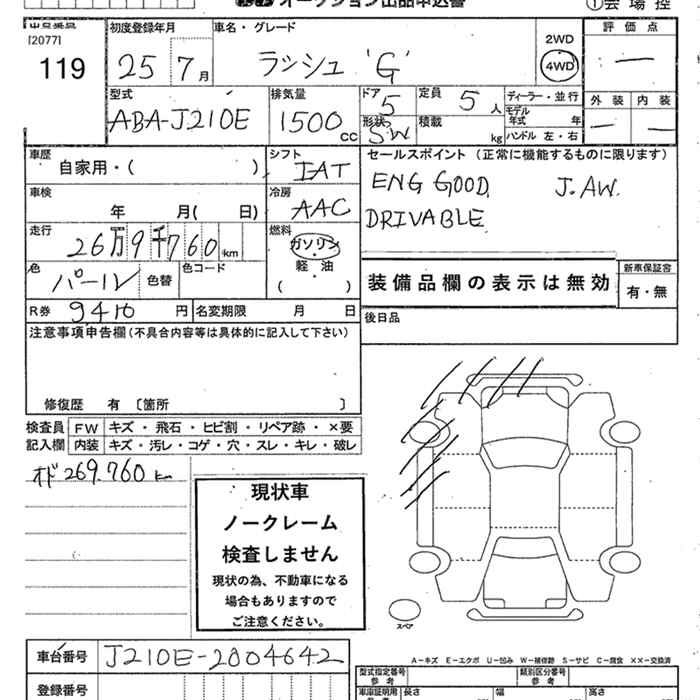 オークション出品申込書
①会場控
[2077]
119
初度登録年月
25年 7月
車名・グレード
ラッシュ 'G'
2WD
4WD
評価点
—
型式
ABA-J210E
排気量
1500cc
ドア
5
形状
SW
定員
5人
積載
kg
ディーラー・並行
モデル年式 年
ハンドル 左・右
外装 内装
— —
車歴
自家用・( )
シフト
IAT
セールスポイント (正常に機能するものに限ります)
ENG GOOD. J.AW.
DRIVABLE
車検
年 月( 日)
冷房
AAC
走行
26万9千760km
燃料
ガソリン
・
軽・油
( )
色
パール
色替
色コード
装備品欄の表示は無効
新車保証書
有・無
R券
9410円
名変期限 月 日
後日品
注意事項申告欄(不具合内容等は具体的に記入して下さい)
修復歴 有 〔箇所 〕
検査員
記入欄
FW キズ・飛石・ヒビ割・リペア跡・×要
内装 キズ・汚レ・コゲ・穴・スレ・キレ・破レ
オド269.760km
現状車
ノークレーム
検査しません
現状の為、不動車になる
場合もありますので
ご注意ください。
スペア
車台番号
J210E-2004642
A-キズ E-エクボ U-凹み W-補修跡 S-サビ C-腐食 ××-交換済
登録番号
型式指定番号
参考
類別区分番号
参考
車庫証明用
長さ 幅 高さ